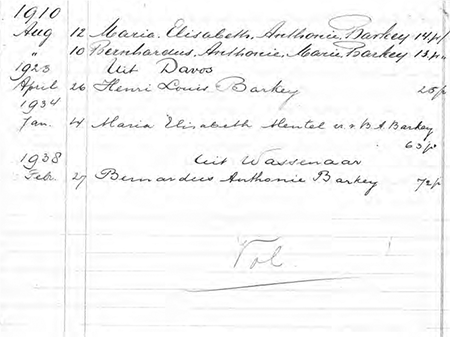 1910
Aug 12 Maria Elisabeth Anthonie Barkey 14 j
" 10 Bernhardus Anthonie Marie Barkey 13 j "
1923 Uit Davos
April 26 Henri Louis Barkey 25 j
1934
Jan. 4 Maria Elisabeth Mentel v. B A Barkey
63 j
1938 Uit Wassenaar
Febr. 27 Bernardus Anthonie Barkey 72 j
Vol